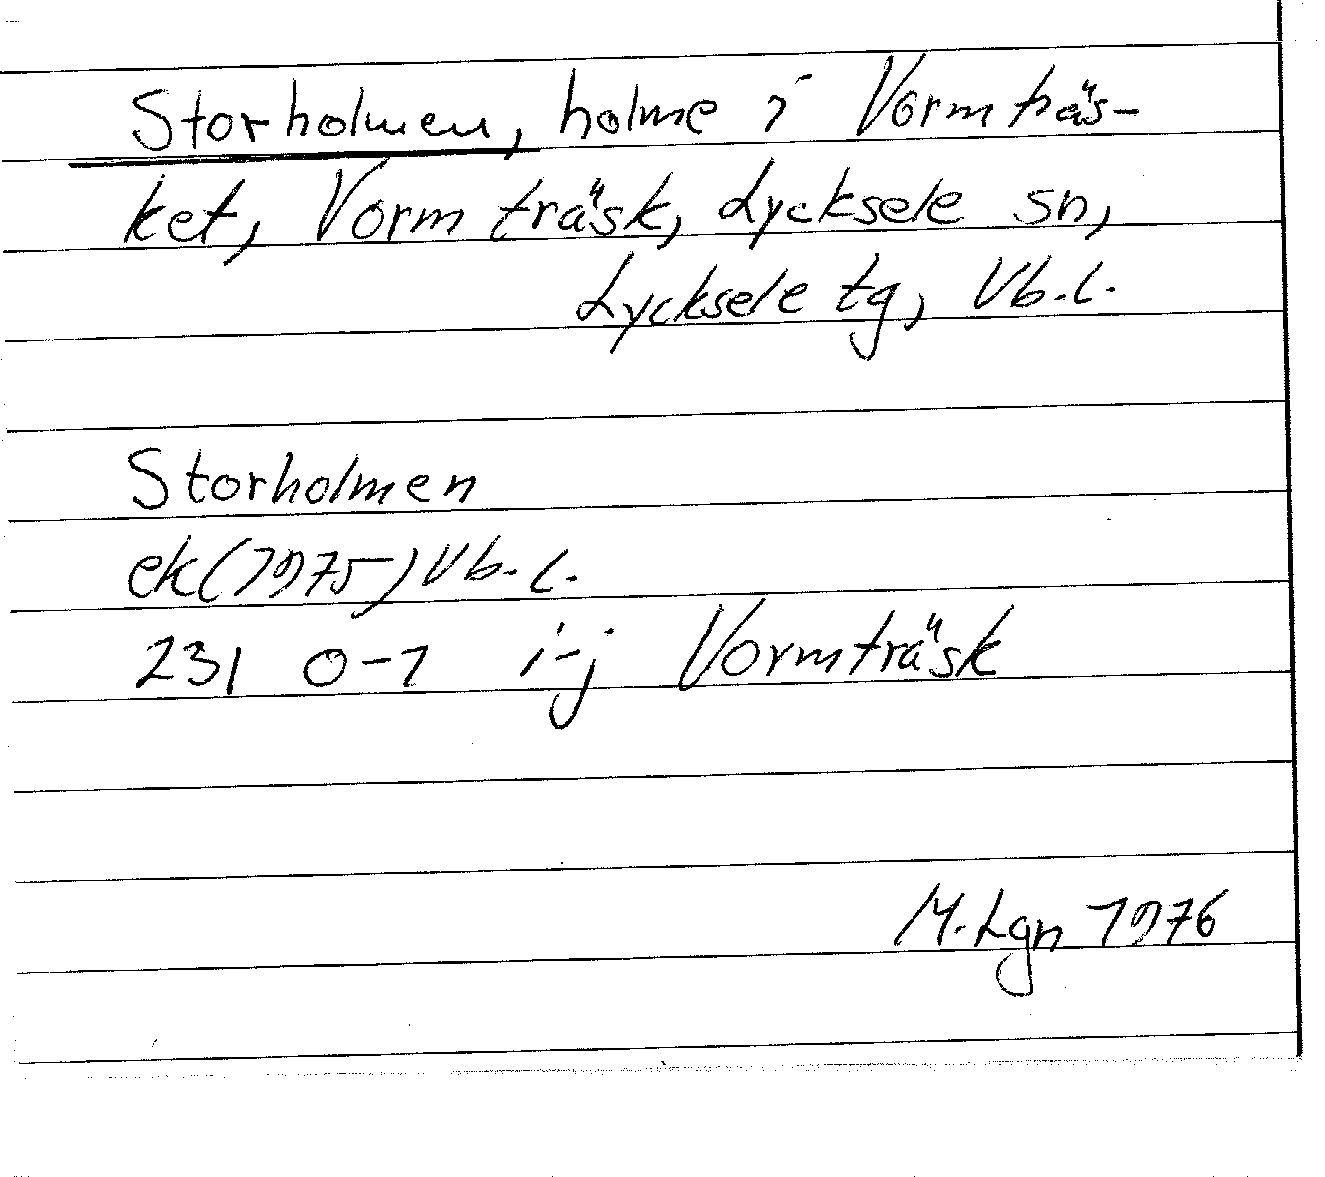 Storholmen, holme i Vormträs-
ket, Vormträsk, Lycksele sn,
Lycksele tg, Vb.l.
Storholmen
ek(1975)Vb.l.
231 0-1 i-j Vormträsk
M.Lgn 1976